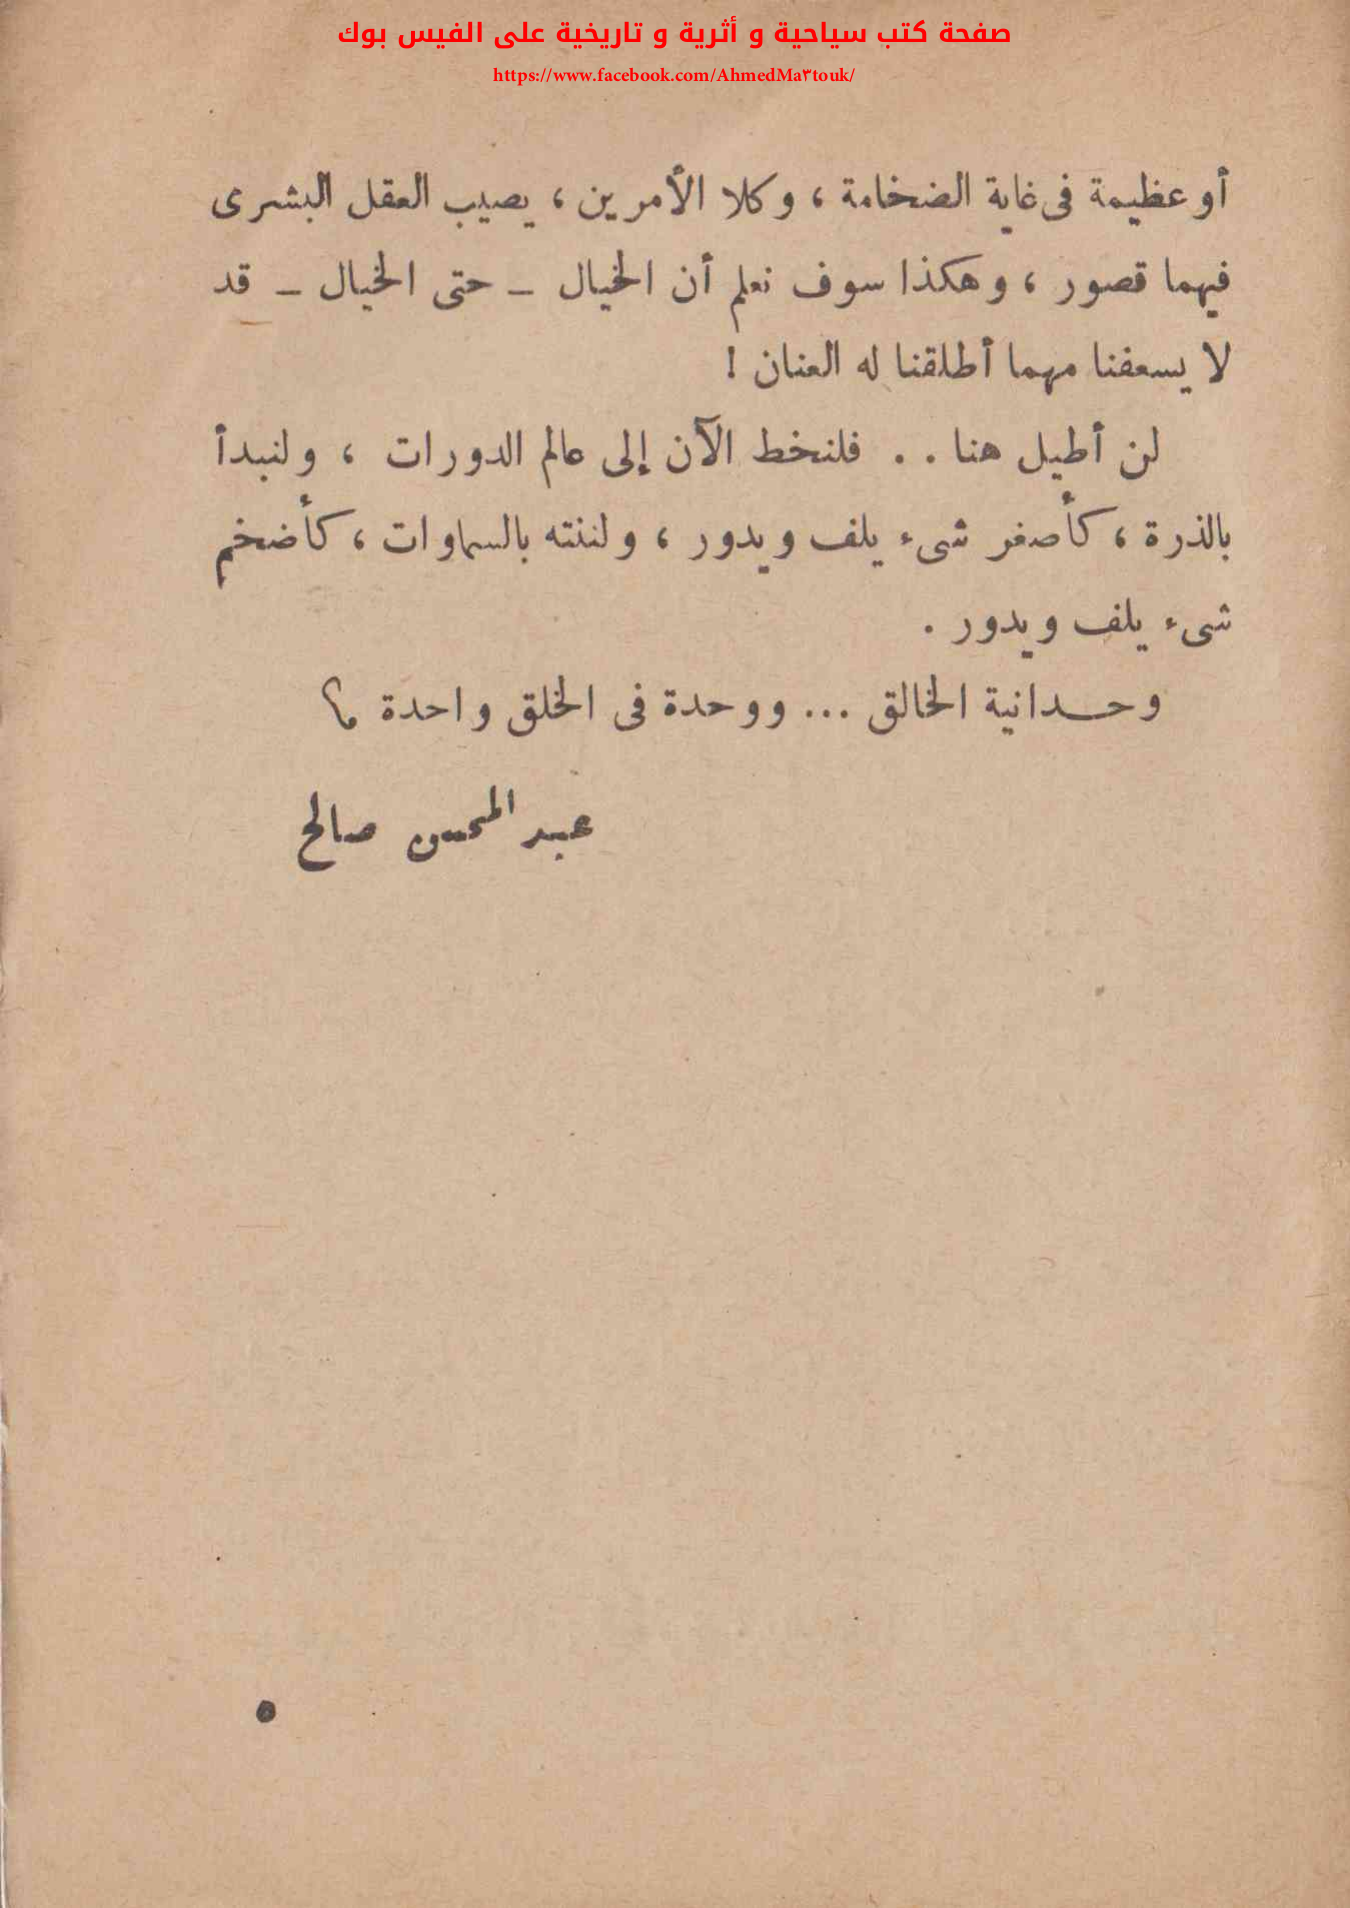 صفحة كتب سياحية و أثرية و تاريخية على الفيس بوك
https://www.facebook.com/AhmedMa٣touk/
أو عظيمة فى غاية الضخامة ، وكلا الأمرين ، يصيب العقل البشرى
فيهما قصور ، وهكذا سوف نعلم أن الخيال – حتى الخيال – قد
لا يسعفنا مهما أطلقنا له العنان !
لن أطيل هنا . . فلنخط الآن إلى عالم الدورات ، ولنبدأ
بالذرة ، كأصغر شىء يلف ويدور ، ولننته بالسماوات ، كأضخم
شىء يلف ويدور .
وحـدانية الخالق ... ووحدة فى الخلق واحدة
عبد المحسن صالح
٥